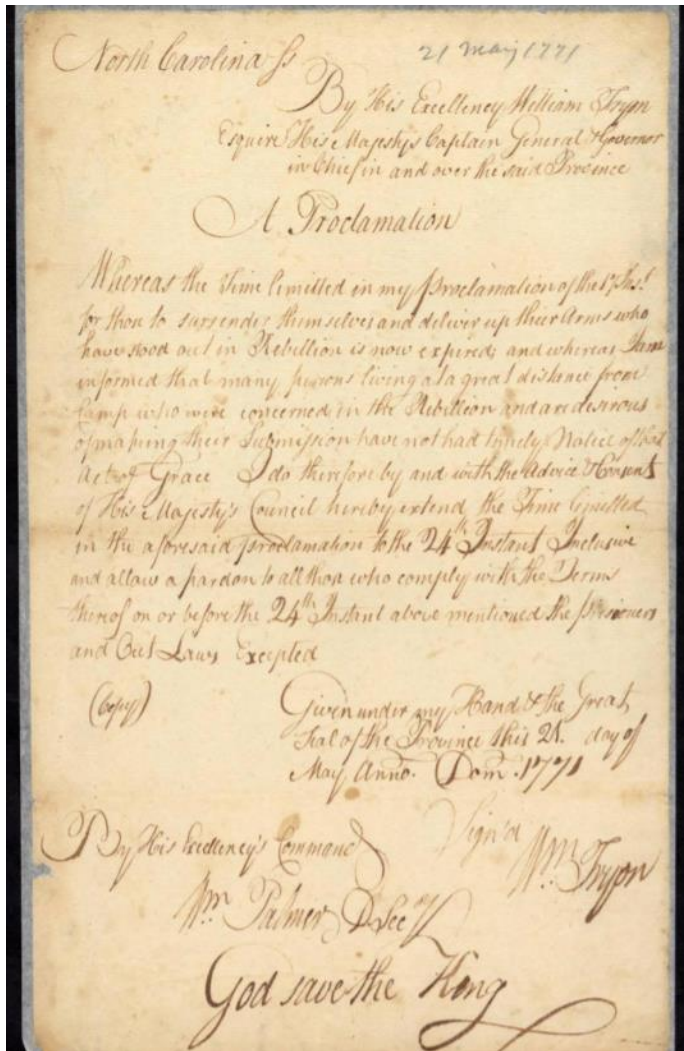 North Carolina Ss
21 May 1771
By His Excellency William Tryon
Esquire His Majestys Captain General & Governor
in Chief in and over the said Province
A Proclamation
Whereas the Time limitted in my Proclamation of the 17 Inst.
for those to surrender themselves and deliver up their Arms who
have stood out in Rebellion is now expired; and whereas I am
informed that many persons living at a great distance from
Camp who were concerned in the Rebellion and are desirous
of making their Submission have not had timely Notice of that
Act of Grace I do therefore by and with the Advice & Consent
of His Majesty's Council hereby extend the Time limitted
in the aforesaid proclamation to the 24th Instant Inclusive
and allow a pardon to all those who comply with the Terms
thereof on or before the 24th Instant above mentioned the prisoners
and Out Laws Excepted
(Copy)
Given under my Hand & the Great
Seal of the Province this 21. day of
May Anno. Dom. 1771
Sign'd
Wm. Tryon
By His Excellency's Command
Wm. Palmer D Secy
God save the King